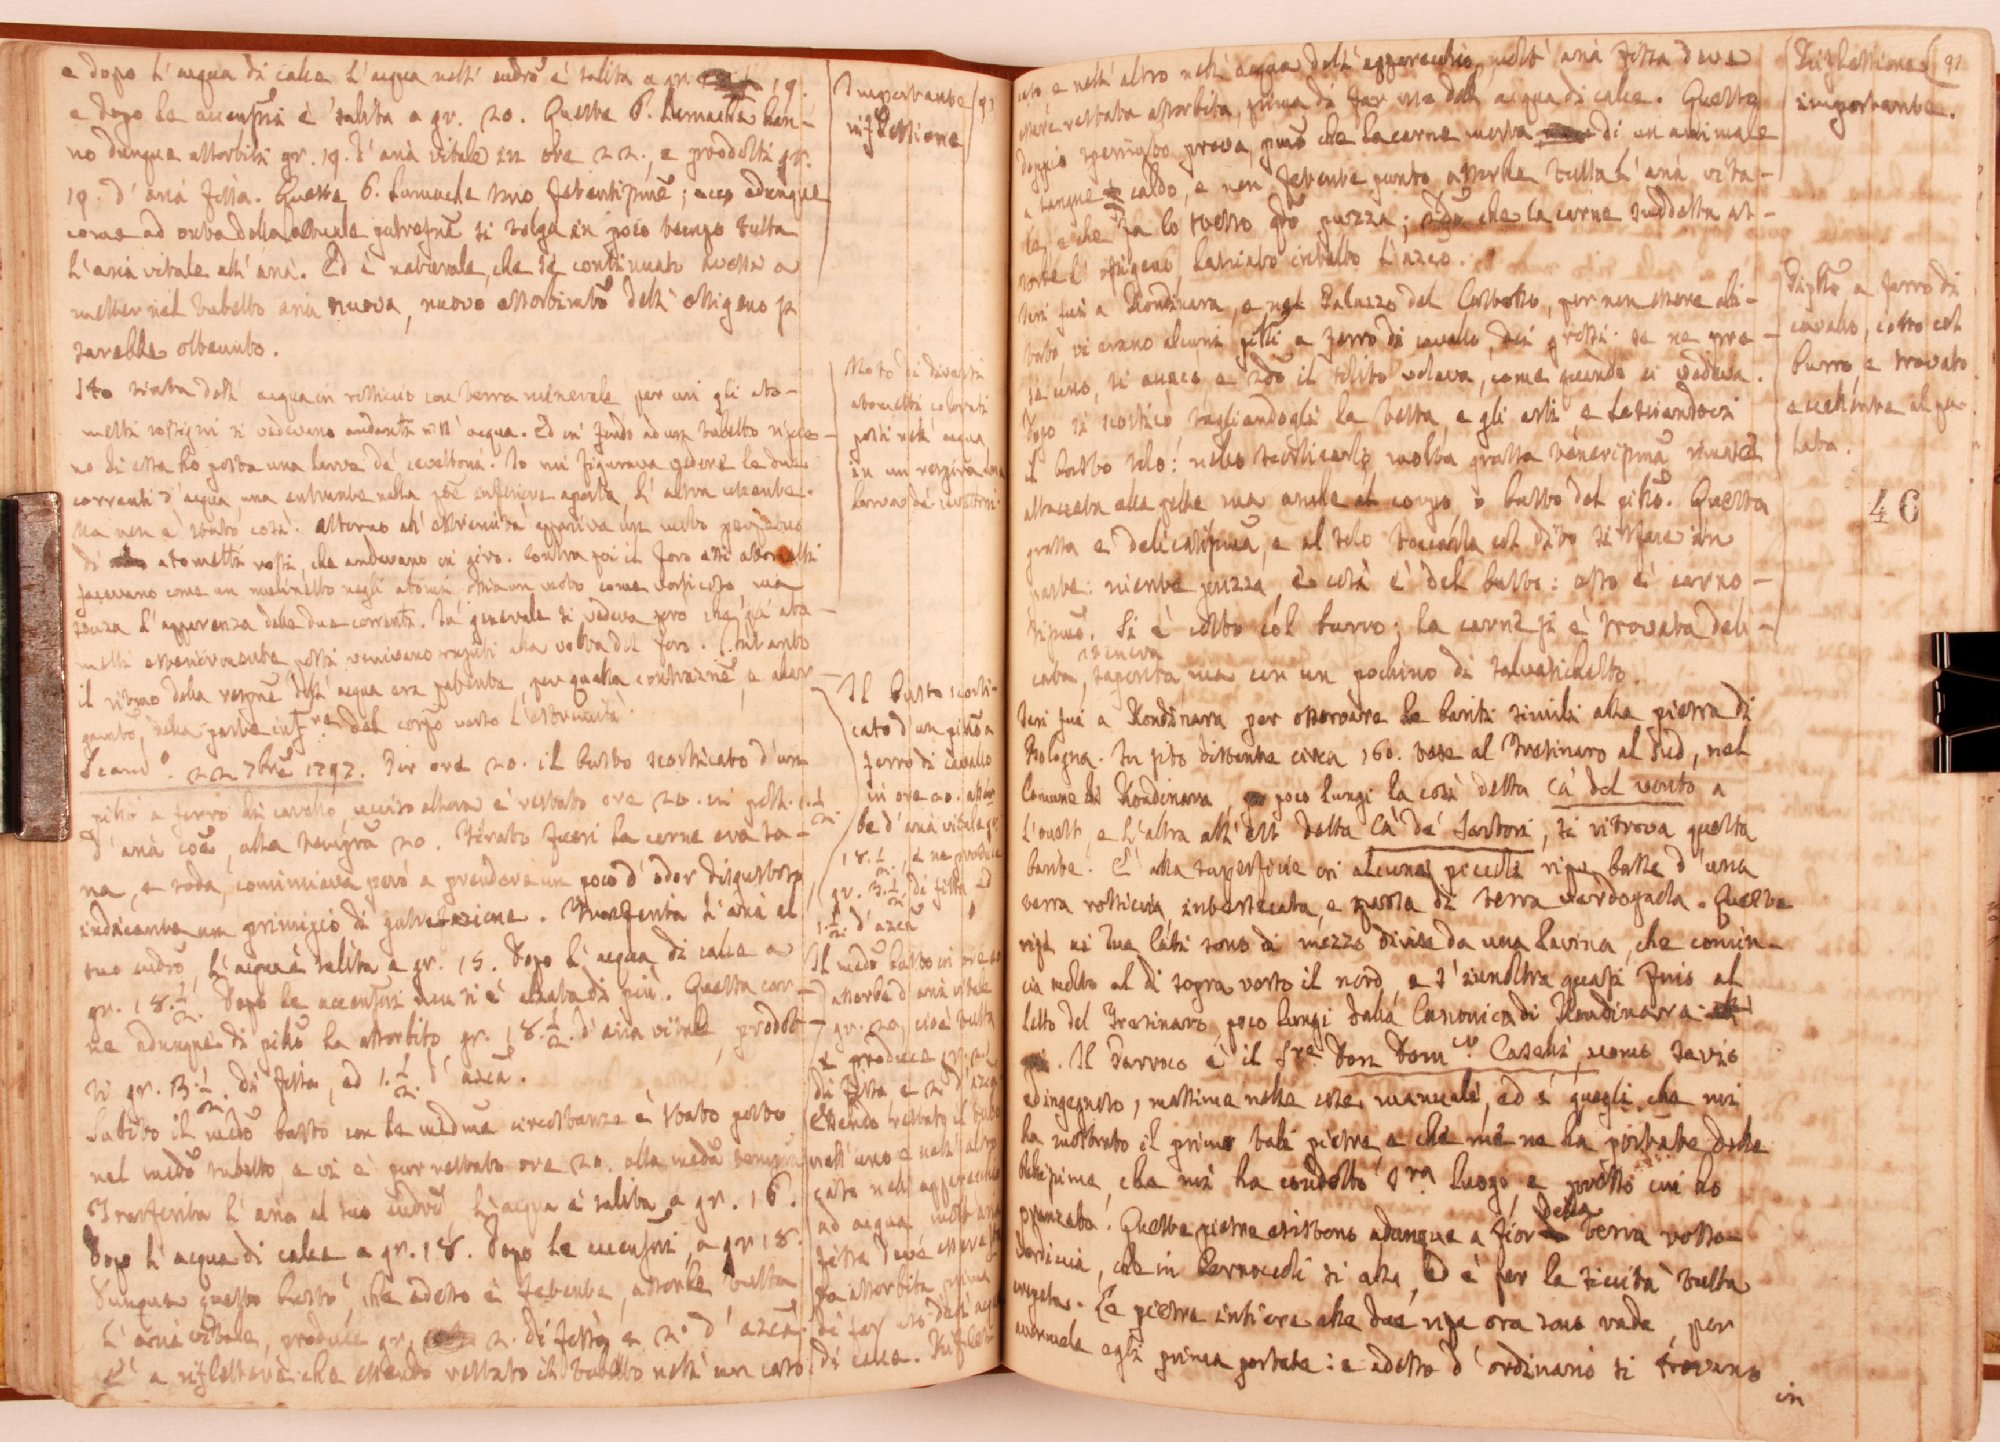 e dopo l'acqua di calce l'acqua nell' eudrõ è salita a gr. 19.
e dopo le accensioni è salita a gr. 20. Queste 6. Lumache han-
no dunque assorbiti gr. 19. d'aria vitale in ore 22., e prodotti gr.
19. d'aria fissa. Queste 6. Lumache sono fetentissime; ecco adunque
come ad onta della attuale putrefne si tolga in poco tempo tutta
l'aria vitale all' aria. Ed è naturale, che se continuato avessi a
metter nel tubetto aria nuova, nuovo assorbimto dell' ossigeno si
sarebbe ottenuto.
Ito tinta dell' acqua in rossiccio con terra minerale per cui gli ato-
metti rossigni si vedevano andanti nell' acqua. Ed in fondo ad un tubetto ripie-
no di essa ho posta una larva de' cavettoni. Io mi figurava vedere le due
correnti d'acqua, una entrante nella pte inferiore aperta, l'altra uscente.
Ma non è stato così. Attorno all' estremità appariva un moto
di atometti rossi, che andavano in giro. Contra poi il foro essi atometti
facevano come un mulinello negli atomi ossia un moto come vorticoso, ma
senza l'apparenza delle due correnti. In generale si vedeva però che gli ato-
metti esteriormente posti venivano alla volta del foro. Intanto
il ritmo della respne dell' acqua era patente, per quella contrazne, e
della parte infre del corpo verso l'estremità.
Scando. 22 7bre 1797. Per ore 20. il busto scorticato d'un
pistro a ferro di cavallo, ucciso allora è restato ore 20. in poll. 1. 1/2.
d'aria coe, alla tempra 20. Tirato fuori la carne era sa-
na, e soda, cominciava però a prendere un poco d'odor disgustoso
indicante un principio di putrefazione. Trasferita l'aria al
suo eudrõ, l'acqua è salita a gr. 15. Dopo l'acqua di calce a
gr. 18. 1/2. Dopo le accensioni non si è alzata di più. Questa car-
ne adunque di pistro ha assorbito gr. 18. 1/2. d'aria vitale, prodot-
ti gr. 3. 1/2. di fissa, ed 1. 1/2. d'azea.
Subito il medo busto con le medme circostanze è stato posto
nel medo tubetto, e vi è pur restato ore 20. alla meda tempra
Trasferita l'aria al suo eudrõ, l'acqua è salita a gr. 16.
Dopo l'acqua di calce a gr. 18. Dopo le accensioni, a gr. 18.
Dunque questo busto, che adesso è fetente, assorbe tutta
l'aria vitale, produce gr. 2. di fissa e 2. d'azea.
È a riflettere che essendo restato il tubetto nell' un caso
Importante
riflessione
Moto di diversi
atometti colorati
posti nell' acqua
in cui respira una
larva de' cavettoni.
Il busto scorti-
cato d'un pistro a
ferro di cavallo
in ore 20. assor-
be d'aria vitale gr.
18. 1/2, e ne produce
gr. 3. 1/2. di fissa, ed
1. 1/2. d'azea
Il medo busto in ore 20
assorbe d'aria vitale
gr. 20, cioè tutta
e produce gr. 2.
di fissa e 2. d'azea
Essendo restato il tubo
nell' uno e nell' altro
caso nell' apparecchio
ad acqua molt' aria
fissa deve essere sta-
ta assorbita prima
di far uso dell' acqua
di calce. Rifless.
cato e nell' altro nell' acqua dell' apparecchio, molt' aria fissa deve
essere restata assorbita, prima di far uso dell' acqua di calce. Questo
doppio sperimto prova, pmo che la carne morta di un animale
a sangue caldo, e non fetente punto assorbe tutta l'aria vita-
le, e che fa lo stesso qdo puzza; 2do che la carne suddetta as-
sorbe l'ossigeno, lasciato intatto l'azeo.
Ieri fui a Rondinara, e nel Palazzo del Corbelli, per non essere abi-
tato vi erano alcuni pistri a ferro di cavallo, dei grossi. Se ne pre-
se uno, si uccise e 2do il solito volava, come quando ci vedeva.
Dopo si scorticò tagliandogli la testa, e gli arti, e lasciandovi
il busto solo: nello scorticarlo molta grassa tenerissima rimase
attaccata alla pelle ma anche al corpo, o busto del pistro. Questa
grassa è delicatissima, e al solo toccarla col dito si sface in
parte: niente puzza, e così è del busto: esso è carno-
sissimo. Si è cotto col burro; la carne si è trovata deli-
cata, tenera saporita, ma con un pochino di salvatichetto.
Ieri fui a Rondinara per osservare le bariti simili alla pietra di
Bologna. In sito distante circa 160. tese al Tresinaro al sud, nel
Comune di Rondinara, poco lungi la così detta Cà del vento a
l'ouest, e l'altra all' est detta Cà de' Sartori, si ritrova questa
barite. È alla superficie in alcune piccole ripe basse d'una
terra rossiccia, intersecata, e mossa di terra verdognola. Queste
ripe ai due lati sono di mezzo divise da una lavina, che comin-
cia molto al di sopra verso il nord, e s'innoltra quasi fino al
letto del Tresinaro, poco lungi dalla Canonica di Rondinara.
Il Parroco è il Sre Don Domco Caselli, uomo savio
ed ingegnoso, massime nelle cose manuali, ed è quegli che mi
ha mostrato il primo tali pietre, e che me ne ha portate delle
bellissime, che mi ha condotto sul luogo, e presso cui ho
pranzato. Queste pietre esistono adunque a fior della terra rosso-
verdiccia, che in bernoccoli si alza, ed è per la siccità tutta
crepata. Le pietre intiere alle due ripe ora sono rade, per
avermele egli prima portate: e adesso d'ordinario si trovano
in
Riflessione
importante.
91
Pistro a ferro di
cavallo, cotto col
burro e trovato
eccellente al pa-
lato.
46